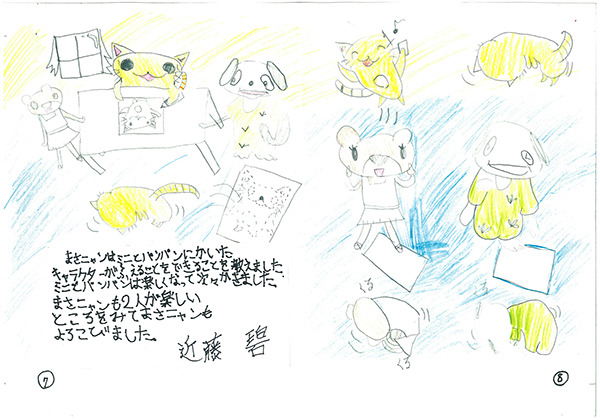 まさニャンはミニとパンパンにかいた
キャラクターがふえることをできることを教えました
ミニとパンパンは楽しくなって次々かきました
まさニャンも2人が楽しい
ところをみてまさニャンも
よろこびました。
近藤 碧
くる
くる
くる
くる
7
8